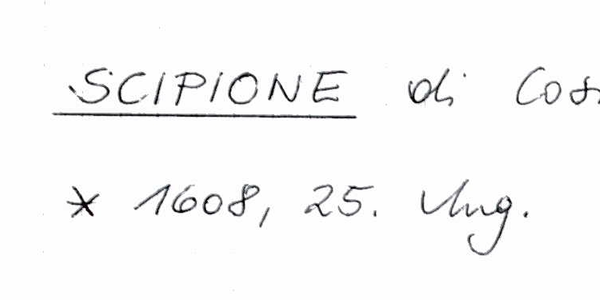 SCIPIONE di Cos
* 1608, 25. Aug.